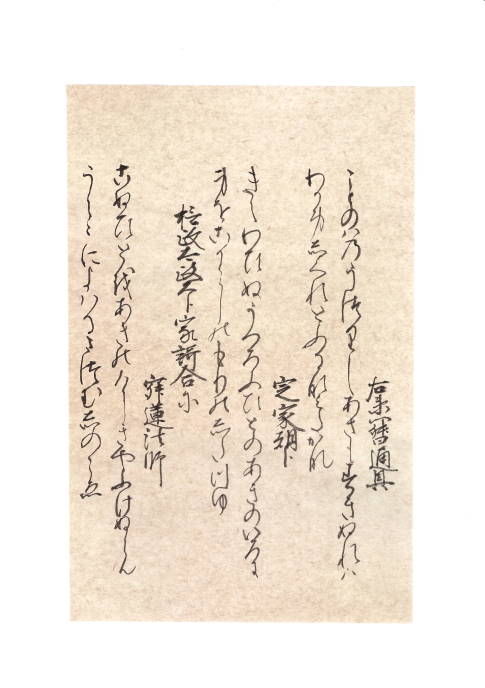 右衛門督通具
ことのはのうつりしあきもすきぬれは
わかみしくれとふるなみたかな
定家朝臣
きえわひぬうつろふひとのあきのいろに
身をこからしのもりのしたつゆ
摂政太政大臣家歌合に
寂蓮法師
こぬひとをあきのけしきやふけぬらん
うらみによはるまつむしのこゑ